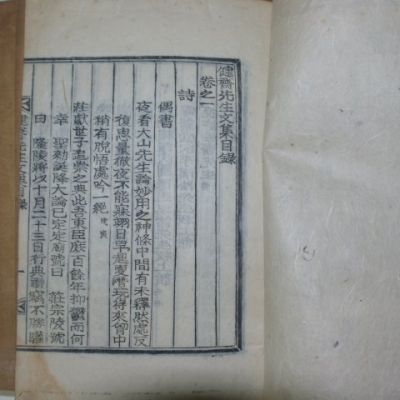 健齋先生文集目錄
卷之一
詩
偶書
夜看大山先生論妙用之神條中間有未釋然處反
復思量徹夜不能寐翊日早起更潛玩得來曾中
稍有脫悟處吟一絶
莊獻世子追崇之典此吾東臣庶百餘年抑鬱而何
幸 聖勅誕降大論已定定廟號曰 莊宗陵號
曰 隆陵將以十月二十三日行典禮窃不勝